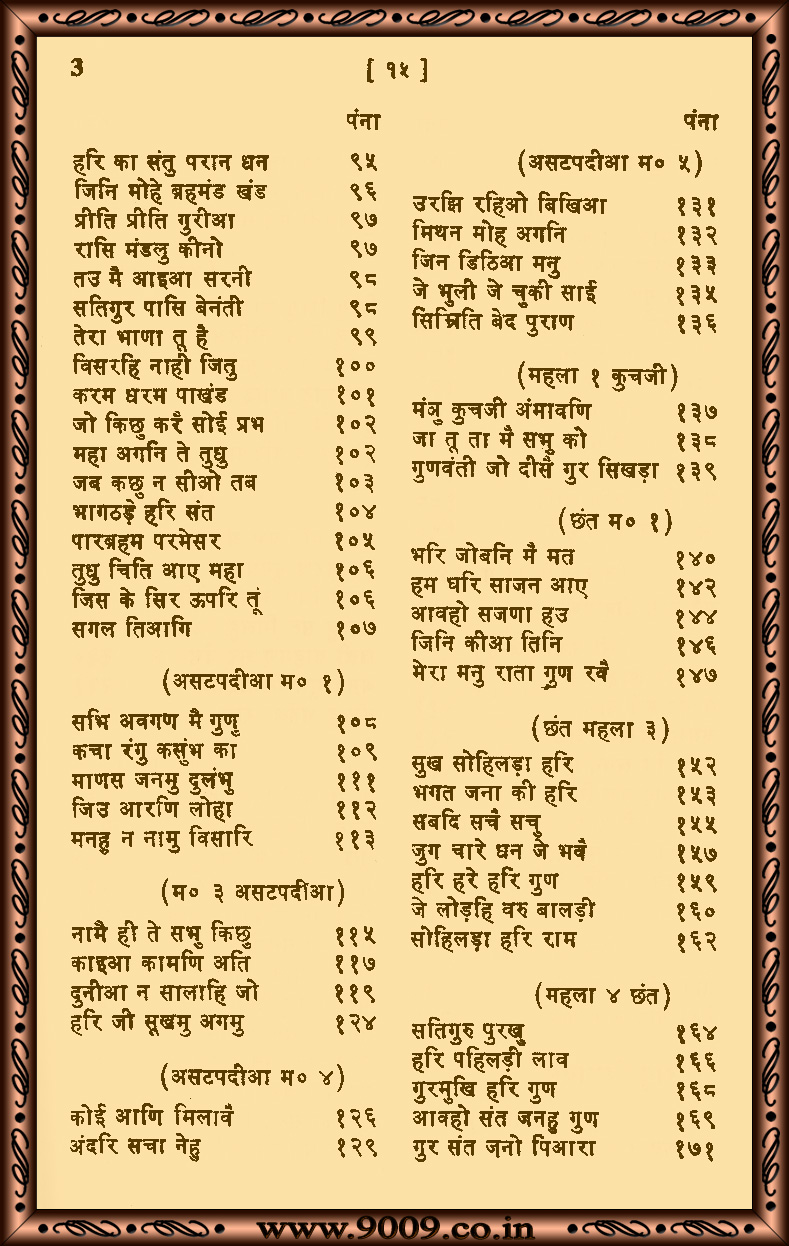 3
[ १५ ]
पंना
हरि का संतु परान धन ९५
जिनि मोहे ब्रहमंड खंड ९६
प्रीति प्रीति गुरीआ ९७
रासि मंडलु कीनो ९७
तउ मै आइआ सरनी ९८
सतिगुर पासि बेनंती ९८
तेरा भाणा तू है ९९
विसरहि नाही जितु १००
करम धरम पाखंड १०१
जो किछु करै सोई प्रभ १०२
महा अगनि ते तुधु १०२
जब कछु न सीओ तब १०३
भागठड़े हरि संत १०४
पारब्रहम परमेसर १०५
तुधु चिति आए महा १०६
जिस के सिर ऊपरि तूं १०६
सगल तिआगि १०७
(असटपदीआ म० १)
सभि अवगण मै गुणु १०८
कचा रंगु कसुंभ का १०९
माणस जनमु दुलंभु १११
जिउ आरणि लोहा ११२
मनहु न नामु विसारि ११३
(म० ३ असटपदीआ)
नामै ही ते सभु किछु ११५
काइआ कामणि अति ११७
दुनीआ न सालाहि जो ११९
हरि जी सूखमु अगमु १२४
(असटपदीआ म० ४)
कोई आणि मिलावै १२६
अंदरि सचा नेहु १२९
पंना
(असटपदीआ म० ५)
उरझि रहिओ बिखिआ १३१
मिथन मोह अगनि १३२
जिन डिठिआ मनु १३३
जे भुली जे चुकी साईं १३५
सिम्रिति बेद पुराण १३६
(महला १ कुचजी)
मंञु कुचजी अंमावणि १३७
जा तू ता मै सभु को १३८
गुणवंती जो दीसै गुर सिखड़ा १३९
(छंत म० १)
भरि जोबनि मै मत १४०
हम घरि साजन आए १४२
आवहो सजणा हउ १४४
जिनि कीआ तिनि १४६
मेरा मनु राता गुण रवै १४७
(छंत महला ३)
सुख सोहिलड़ा हरि १५२
भगत जना की हरि १५३
सबदि सचै सचु १५५
जुग चारे धन जे भवै १५७
हरि हरे हरि गुण १५९
जे लोड़हि वरु बालड़ी १६०
सोहिलड़ा हरि राम १६२
(महला ४ छंत)
सतिगुरु पुरखु १६४
हरि पहिलड़ी लाव १६६
गुरमुखि हरि गुण १६८
आवहो संत जनहु गुण १६९
गुर संत जनो पिआरा १७१
www.9009.co.in